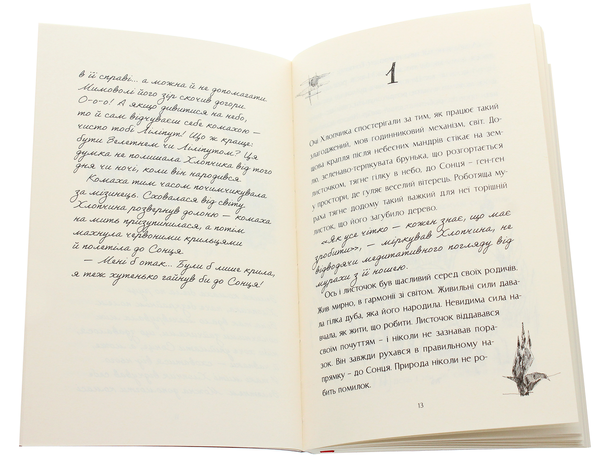 в її справі... а можна й не допомагати
Мимоволі його зір скочив догори.
О-о-о! А якщо дивитися на небо,
то й сам відчуваєш себе комахою –
чисто тобі Ліліпут! Що ж краще:
бути Велетнем чи Ліліпутом? Ця
думка не полишала Хлопчика від того
дня чи ночі, коли він народився.
Комаха тим часом почимчикувала
за мізинець. Сховалася від світу.
Хлопчина розвернув долоню – комаха
на мить призупинилася, а потім
махнула червоними крильцями
й полетіла до Сонця.
– Мені б отак... Були б лише крила,
я теж хутенько гайнув би до Сонця!
1
Очі Хлопчика спостерігали за тим, як працює такий
злагоджений, мов годинниковий механізм, світ. До-
щова крапля після небесних мандрів стікає на зем-
лю, зеленаво-терпкувата брунька, що розгортається
листочком, тягне гілку в небо, до Сонця – ген-ген
у простори, де гуляє веселий вітерець. Роботяща му-
раха тягне додому такий важкий для неї торішній
листок, що його загубило дерево.
«Як усе чітко – кожен знає, що має
зробити», – міркував Хлопчина, не
відводячи медитативного погляду від
мурахи з її ношею.
Ось і листочок був щасливий серед своїх родичів.
Жив мирно, в гармонії зі світом. Живильні сили дава-
ла гілка дуба, яка його народила. Невидима сила на-
вчала, як жити, що робити. Листочок віддавався
своїм почуттям – і ніколи не зазнавав пора-
зок. Він завжди рухався в правильному на-
прямку – до Сонця. Природа ніколи не ро-
бить помилок.
13